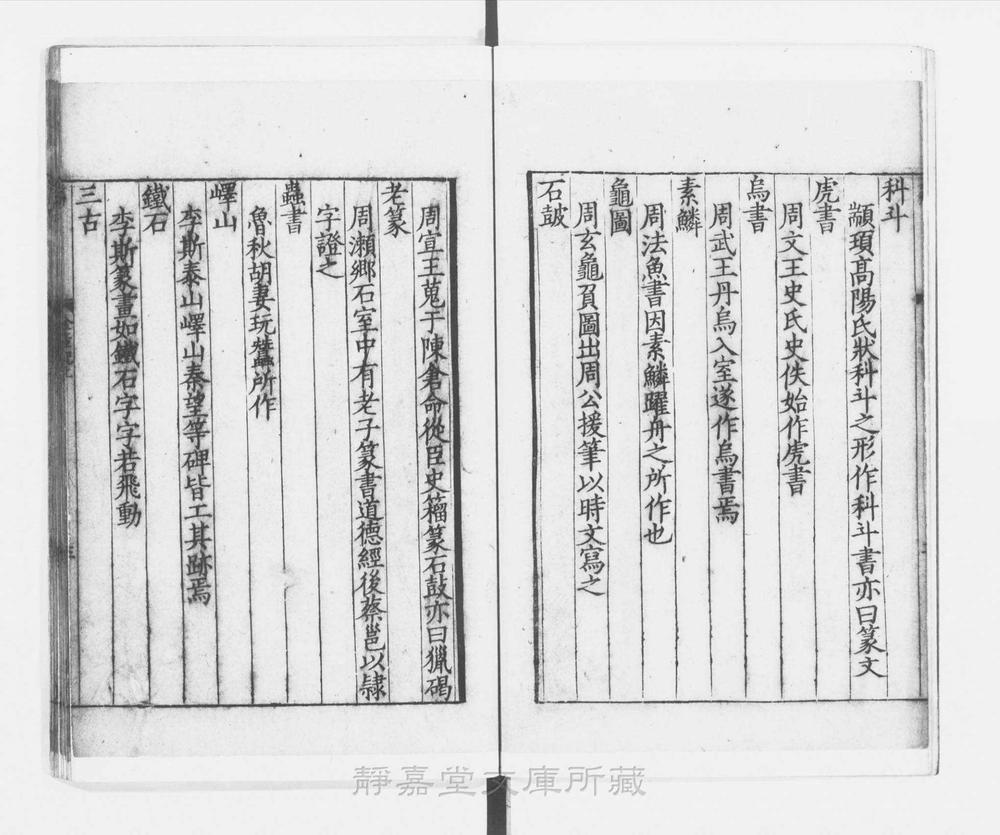 科斗
顓頊高陽氏狀科斗之形作科斗書亦曰篆文
虎書
周文王史氏史佚始作虎書
烏書
周武王丹烏入室遂作烏書焉
素鱗
周法魚書因素鱗躍舟之所作也
龜圖
周玄龜負圖出周公援筆以時文寫之
石皷
周宣王蒐于陳倉命從臣史籀篆石鼓亦曰獵碣
老篆
周瀨鄉石室中有老子篆書道德經後蔡邕以隸
字證之
蟲書
魯秋胡妻玩蠶所作
嶧山
李斯泰山嶧山秦望等碑皆工其跡焉
鐵石
李斯篆畫如鐵石字字若飛動
三古
靜嘉堂文庫所藏